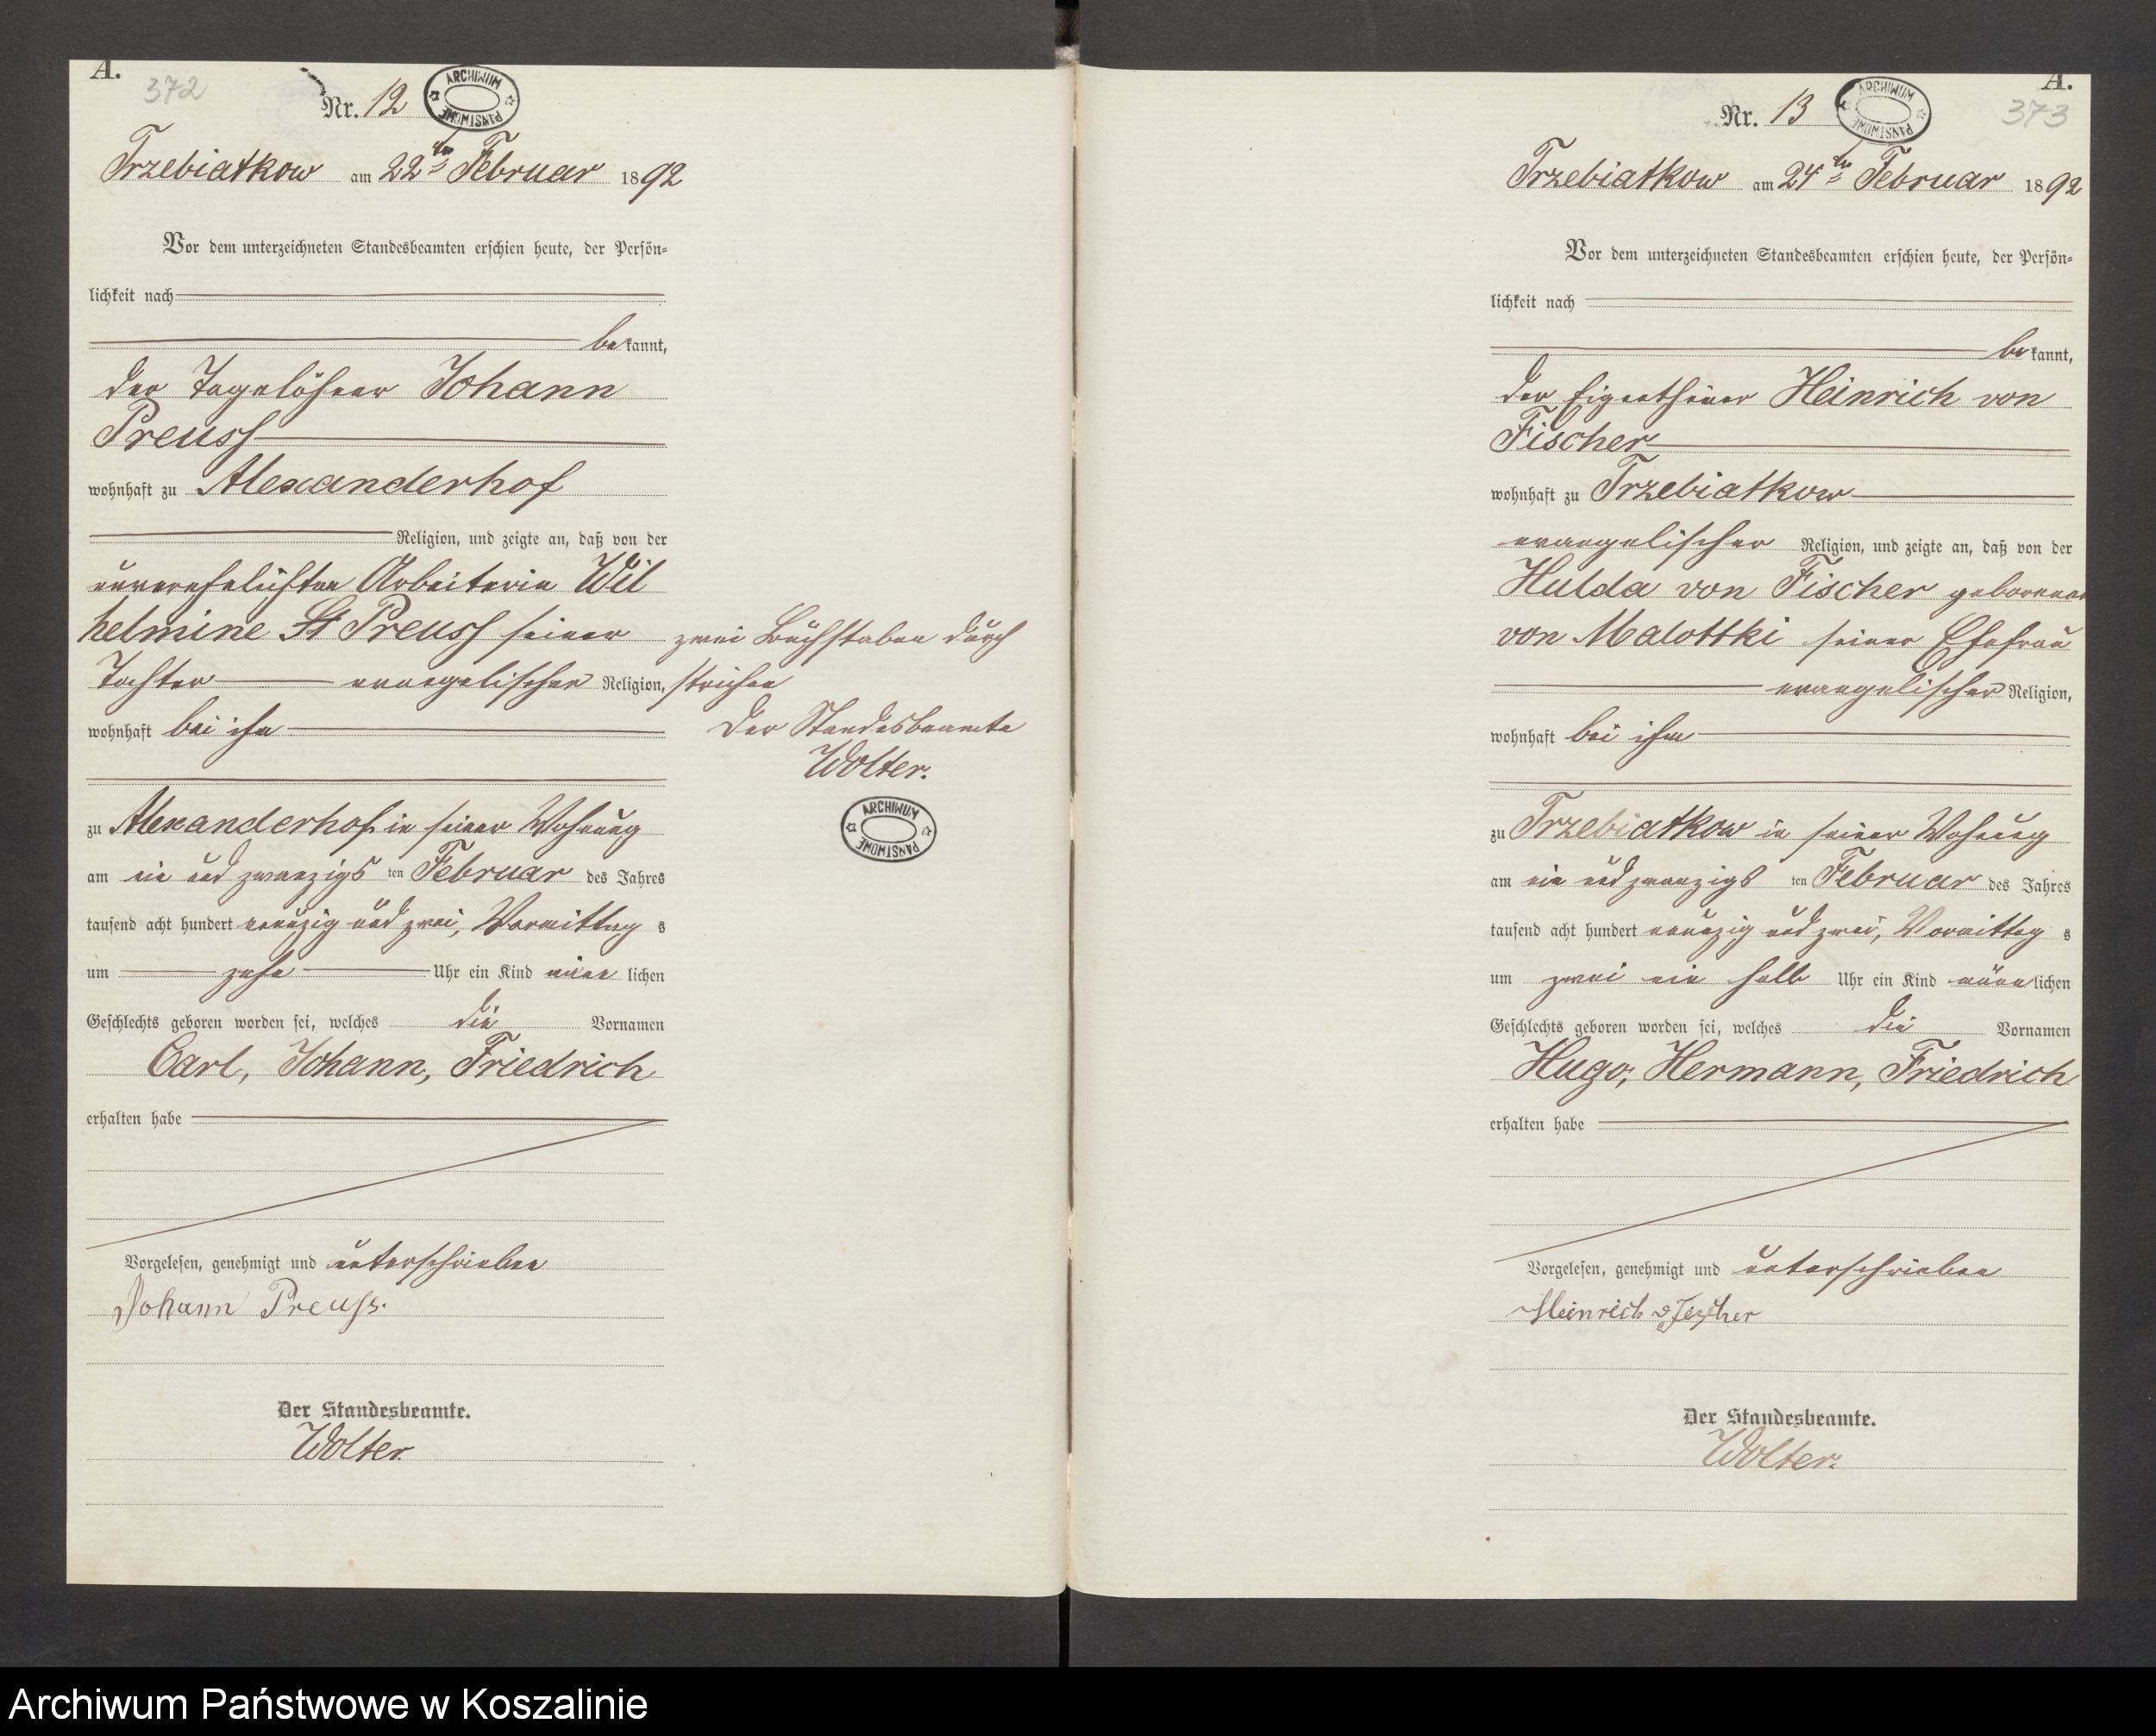 A.
372
Nr. 12
ARCHIWUM PAŃSTWOWE
Trzebiatkow am 22ten Februar 1892
Vor dem unterzeichneten Standesbeamten erschien heute, der Persön-
lichkeit nach
bekannt,
der Tagelöhner Johann
Preuss
wohnhaft zu Alexanderhof
Religion, und zeigte an, daß von der
unverehelichten Arbeiterin Wil
helmine St Preuss seiner
Tochter evangelischer Religion,
wohnhaft bei ihm
zu Alexanderhof in seiner Wohnung
am ein und zwanzigsten Februar des Jahres
tausend acht hundert neunzig und zwei, Vormittags
um zehn Uhr ein Kind männlichen
Geschlechts geboren worden sei, welches die Vornamen
Carl, Johann, Friedrich
erhalten habe
Vorgelesen, genehmigt und unterschrieben
Johann Preuss.
Der Standesbeamte.
Wolter.
zwei Buchstaben durch
strichen
Der Standesbeamte
Wolter.
ARCHIWUM PAŃSTWOWE
A.
373
Nr. 13
ARCHIWUM PAŃSTWOWE
Trzebiatkow am 24ten Februar 1892
Vor dem unterzeichneten Standesbeamten erschien heute, der Persön-
lichkeit nach
bekannt,
der Eigenthümer Heinrich von
Fischer
wohnhaft zu Trzebiatkow
evangelischer Religion, und zeigte an, daß von der
Hulda von Fischer geborenen
von Malottki seiner Ehefrau
evangelischer Religion,
wohnhaft bei ihm
zu Trzebiatkow in seiner Wohnung
am ein und zwanzigsten Februar des Jahres
tausend acht hundert neunzig und zwei, Vormittags
um zwei ein halb Uhr ein Kind männlichen
Geschlechts geboren worden sei, welches die Vornamen
Hugo, Hermann, Friedrich
erhalten habe
Vorgelesen, genehmigt und unterschrieben
Heinrich v Fischer
Der Standesbeamte.
Wolter.
Archiwum Państwowe w Koszalinie